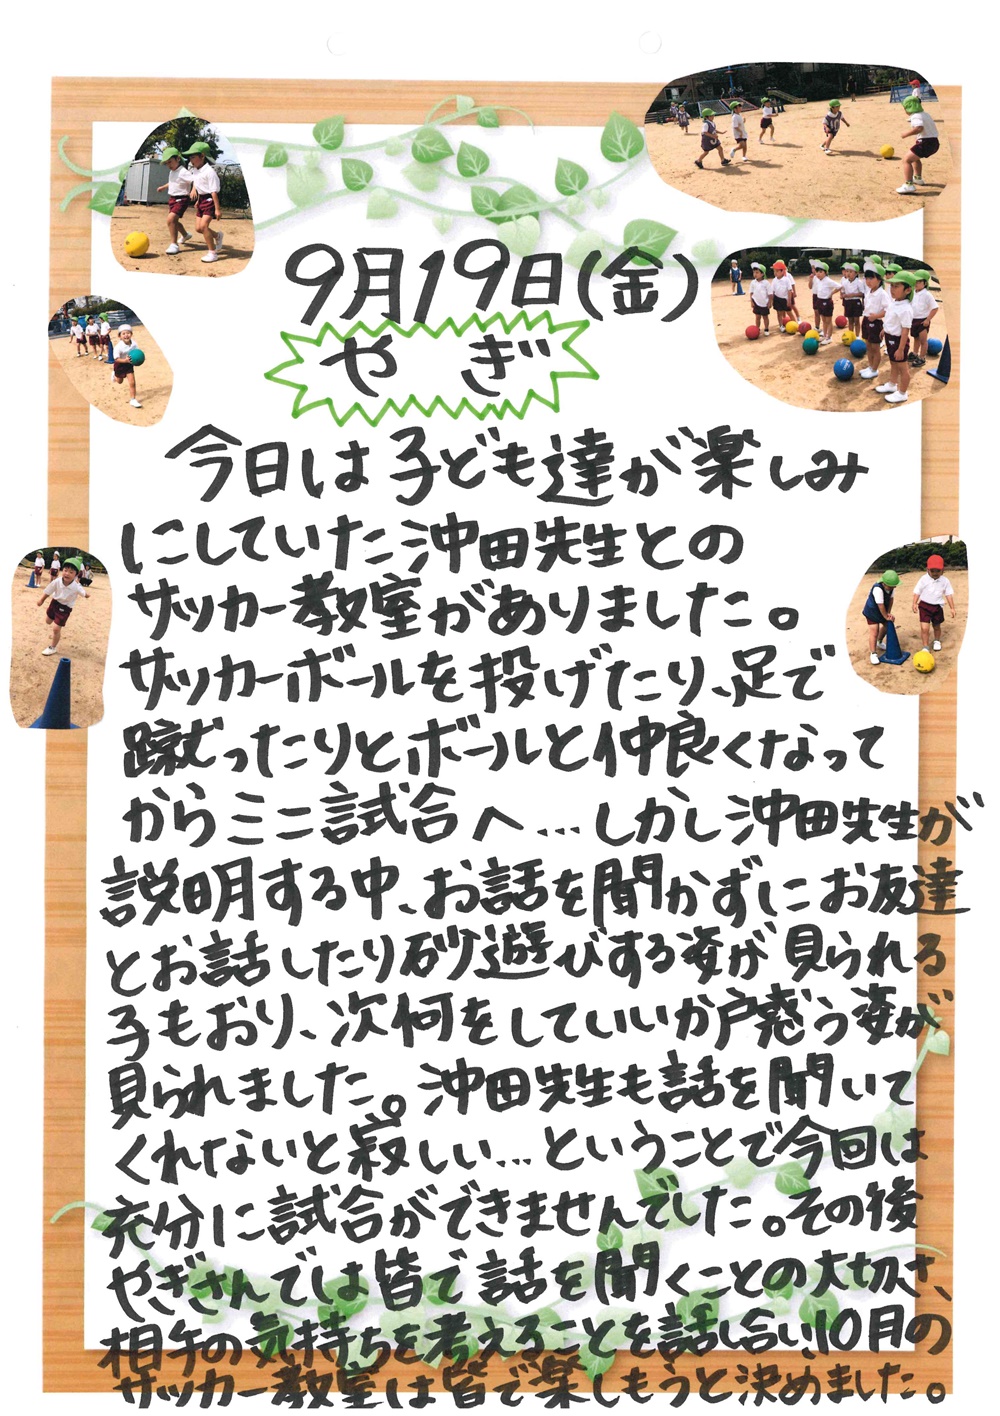 9月19日(金)
やぎ
今日は子ども達が楽しみ
にしていた沖田先生との
サッカー教室がありました。
サッカーボールを投げたり、足で
蹴ったりとボールと仲良くなって
からミニ試合へ…しかし沖田先生が
説明する中、お話を聞かずにお友達
とお話したり砂遊びする姿が見られる
子もおり、次何をしていいか戸惑う姿が
見られました。沖田先生も話を聞いて
くれないと寂しい…ということで今回は
充分に試合ができませんでした。その後
やぎさんでは皆で話を聞くことの大切さ、
相手の気持ちを考えることを話し合い、10月の
サッカー教室は皆で楽しもうと決めました。